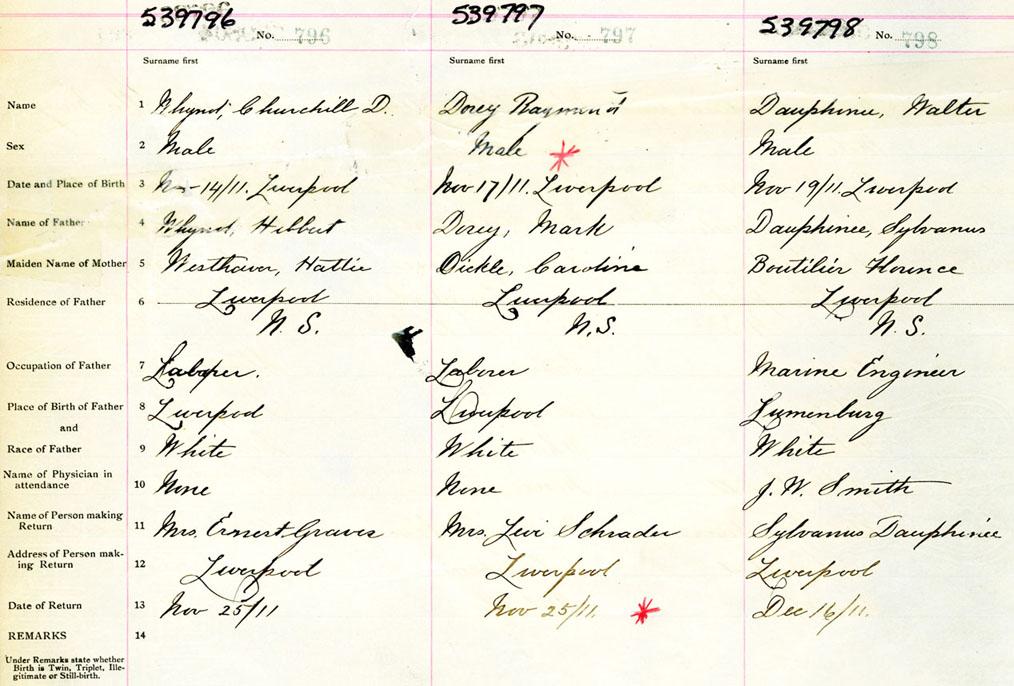 539796 539797 539798
No. 796 No. 797 No. 798
Surname first Surname first Surname first
Name 1 Whynot, Churchill D. Dorey Raymond Dauphinee, Walter
Sex 2 Male Male Male
Date and Place of Birth 3 Nov-14/11. Liverpool Nov 17/11. Liverpool Nov 19/11. Liverpool
Name of Father 4 Whynot, Hibbert Dorey, Mark Dauphinee, Sylvanus
Maiden Name of Mother 5 Westhaver, Hattie Dickle, Caroline Boutilier Florence
Residence of Father 6 Liverpool Liverpool Liverpool
N. S. N. S. N. S.
Occupation of Father 7 Laborer. Laborer Marine Engineer
Place of Birth of Father 8 Liverpool Liverpool Lunenburg
and
Race of Father 9 White White White
Name of Physician in
attendance 10 None None J. W. Smith
Name of Person making
Return 11 Mrs. Ernest Graves Mrs. Levi Schrader Sylvanus Dauphinee
Address of Person mak-
ing Return 12 Liverpool Liverpool Liverpool
Date of Return 13 Nov 25/11 Nov 25/11. Dec 16/11.
REMARKS 14
Under Remarks state whether
Birth is Twin, Triplet, Ille-
gitimate or Still-birth.